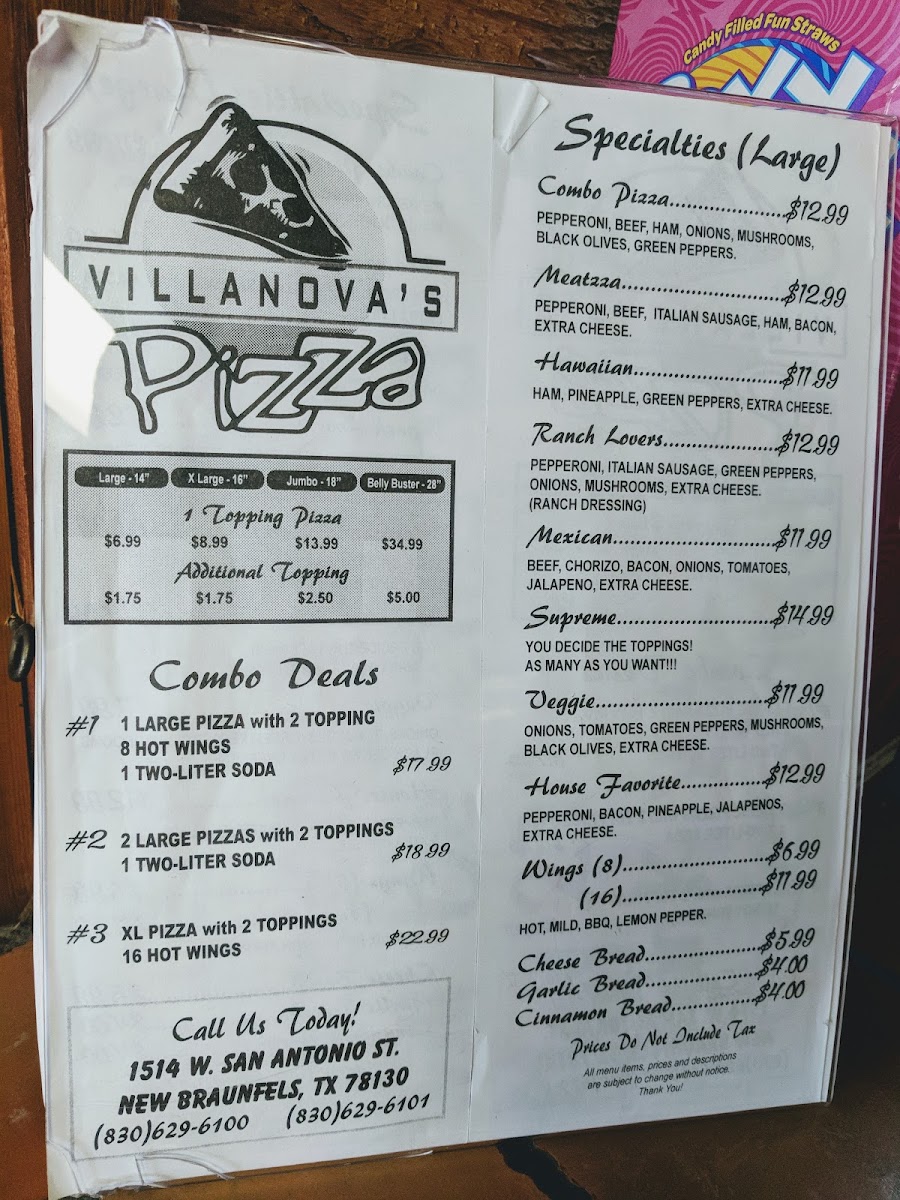 Candy Filled Fun Straws
VILLANOVA'S
Pizza
Large - 14" X Large - 16" Jumbo - 18" Belly Buster - 28"
1 Topping Pizza
$6.99 $8.99 $13.99 $34.99
Additional Topping
$1.75 $1.75 $2.50 $5.00
Combo Deals
#1 1 LARGE PIZZA with 2 TOPPING
8 HOT WINGS
1 TWO-LITER SODA $17.99
#2 2 LARGE PIZZAS with 2 TOPPINGS
1 TWO-LITER SODA $18.99
#3 XL PIZZA with 2 TOPPINGS
16 HOT WINGS $22.99
Call Us Today!
1514 W. SAN ANTONIO ST.
NEW BRAUNFELS, TX 78130
(830)629-6100 (830)629-6101
Specialties (Large)
Combo Pizza......................$12.99
PEPPERONI, BEEF, HAM, ONIONS, MUSHROOMS,
BLACK OLIVES, GREEN PEPPERS.
Meatzza..............................$12.99
PEPPERONI, BEEF, ITALIAN SAUSAGE, HAM, BACON,
EXTRA CHEESE.
Hawaiian...........................$11.99
HAM, PINEAPPLE, GREEN PEPPERS, EXTRA CHEESE.
Ranch Lovers.....................$12.99
PEPPERONI, ITALIAN SAUSAGE, GREEN PEPPERS,
ONIONS, MUSHROOMS, EXTRA CHEESE.
(RANCH DRESSING)
Mexican..............................$11.99
BEEF, CHORIZO, BACON, ONIONS, TOMATOES,
JALAPENO, EXTRA CHEESE.
Supreme.............................$14.99
YOU DECIDE THE TOPPINGS!
AS MANY AS YOU WANT!!!
Veggie................................$11.99
ONIONS, TOMATOES, GREEN PEPPERS, MUSHROOMS,
BLACK OLIVES, EXTRA CHEESE.
House Favorite................$12.99
PEPPERONI, BACON, PINEAPPLE, JALAPENOS,
EXTRA CHEESE.
Wings (8)...........................$6.99
(16)..........................$11.99
HOT, MILD, BBQ, LEMON PEPPER.
Cheese Bread.....................$5.99
Garlic Bread.....................$4.00
Cinnamon Bread................$4.00
Prices Do Not Include Tax
All menu items, prices and descriptions
are subject to change without notice.
Thank You!